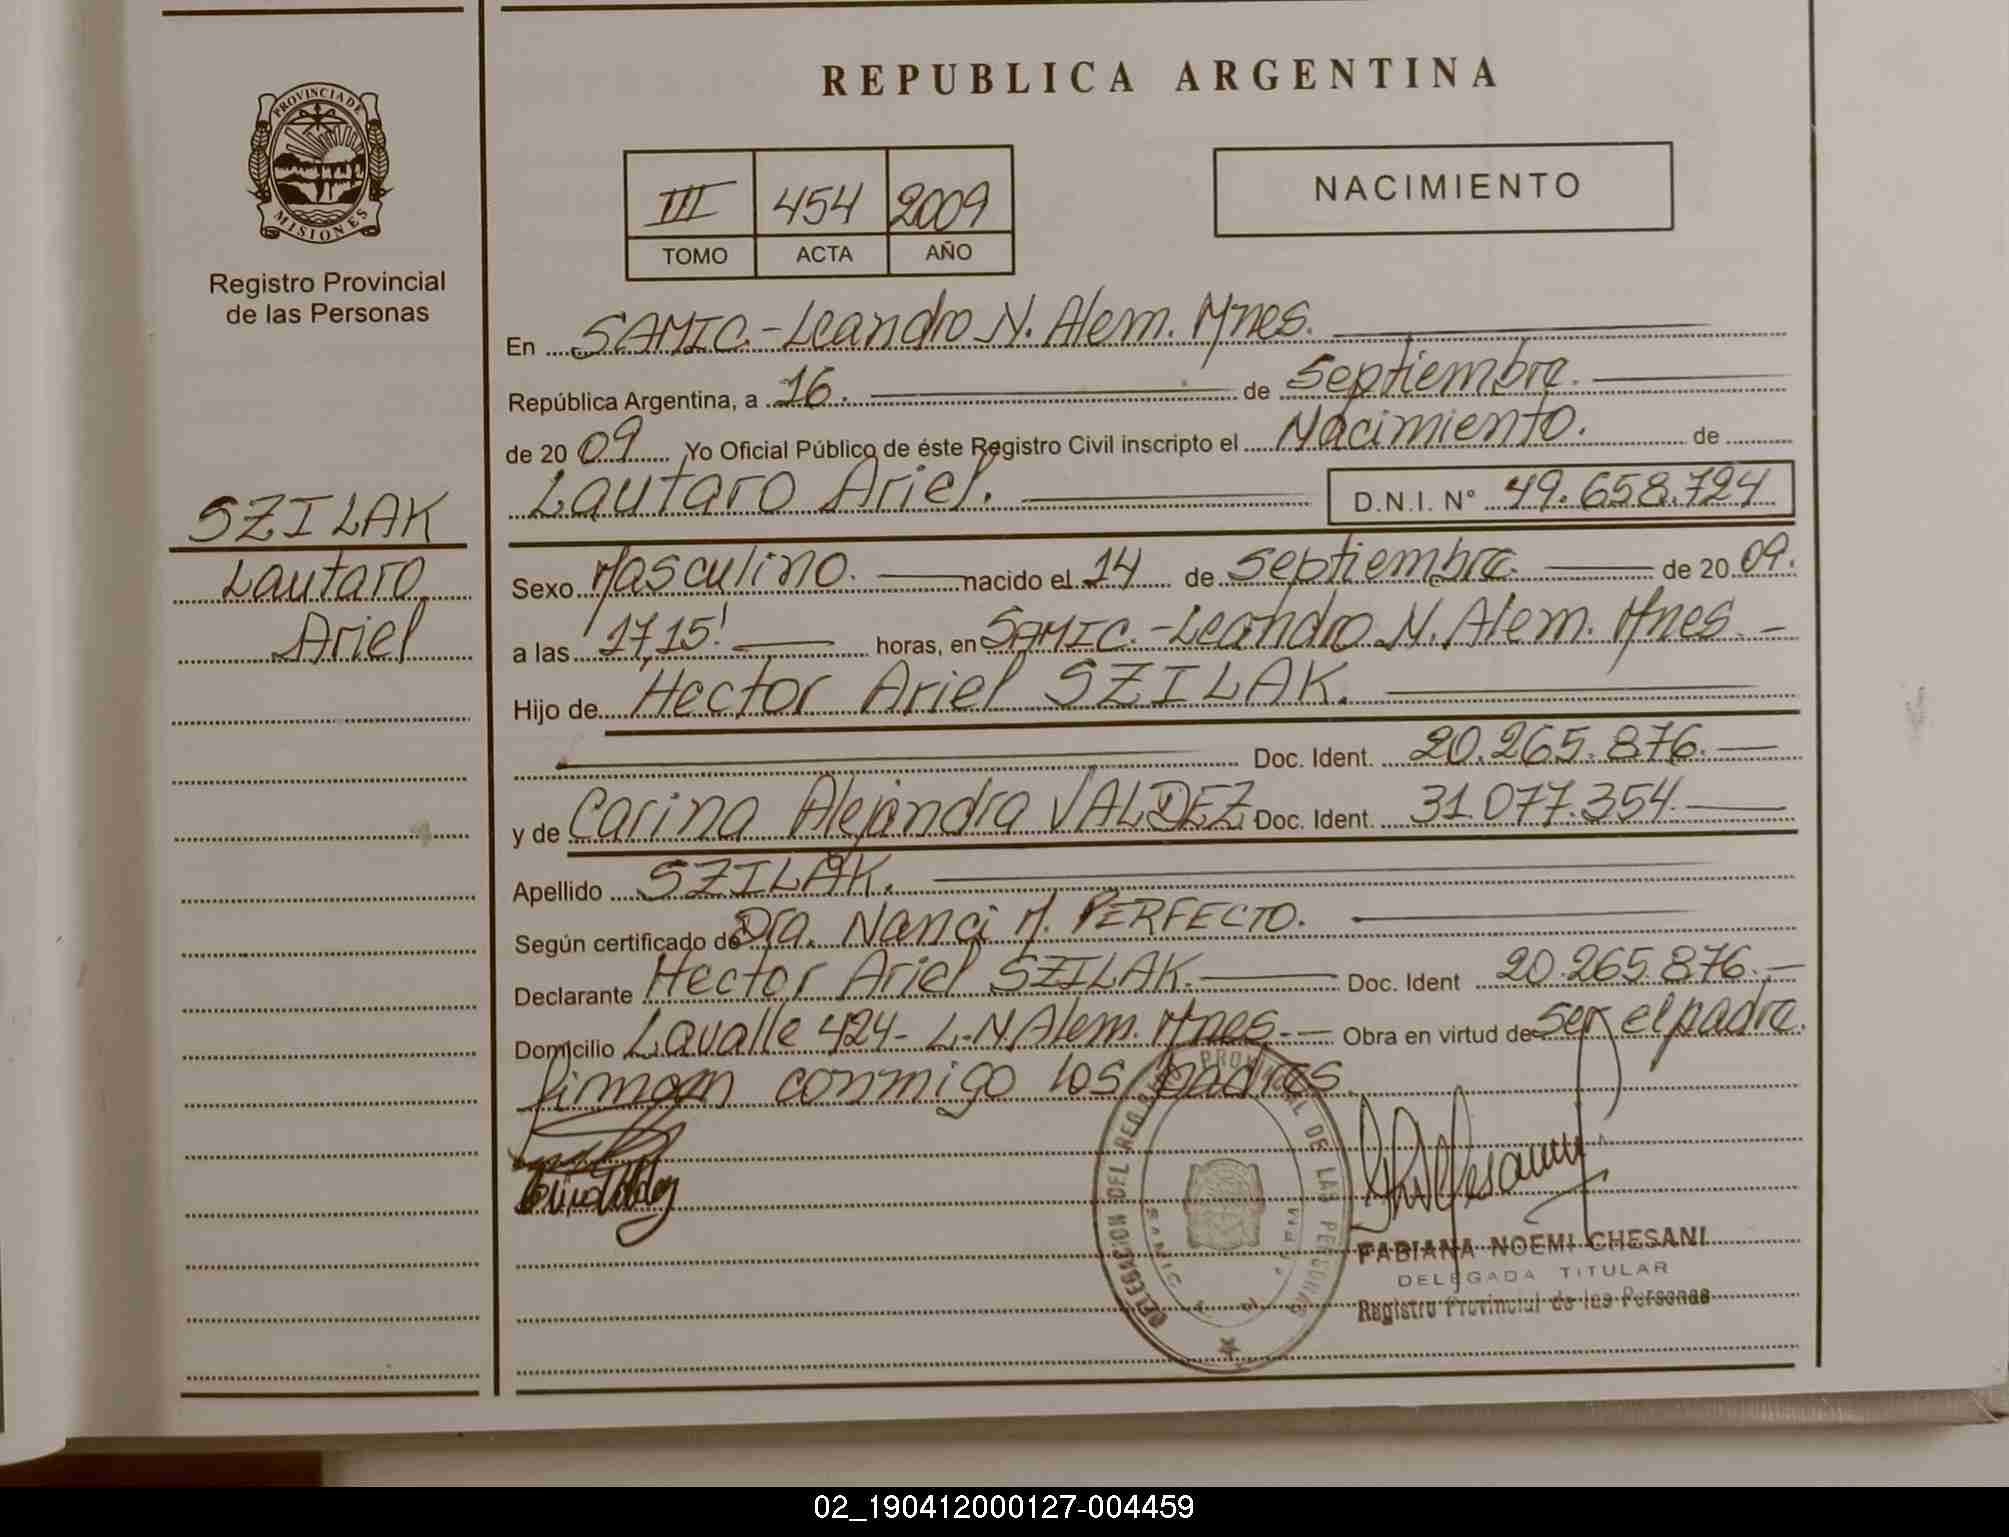 REPUBLICA ARGENTINA
PROVINCIA DE
MISIONES
Registro Provincial
de las Personas
III 454 2009
TOMO ACTA AÑO
NACIMIENTO
SZILAK
Lautaro
Ariel
En SAMIC.-Leandro N. Alem. Mnes.
República Argentina, a 16. de Septiembre.
de 20 09 Yo Oficial Público de éste Registro Civil inscripto el Nacimiento. de
Lautaro Ariel. D.N.I. N° 49.658.724
Sexo Masculino. nacido el 14 de Septiembre. de 20 09.
a las 17,15' horas, en SAMIC.-Leandro N. Alem. Mnes. -
Hijo de Hector Ariel SZILAK.
Doc. Ident. 20.265.876.
y de Carina Alejandra VALDEZ. Doc. Ident. 31.077.354
Apellido SZILAK.
Según certificado de Dra. Nanci M. PERFECTO.
Declarante Hector Ariel SZILAK. Doc. Ident 20.265.876.
Domicilio Lavalle 424- L.N Alem. Mnes. Obra en virtud de Ser el padre.
firman conmigo los padres
DELEGACION DEL REG PROVINCIAL DE LAS PERSONAS
SAMIC
FABIANA NOEMI CHESANI
DELEGADA TITULAR
Registro Provincial de las Personas
02_190412000127-004459